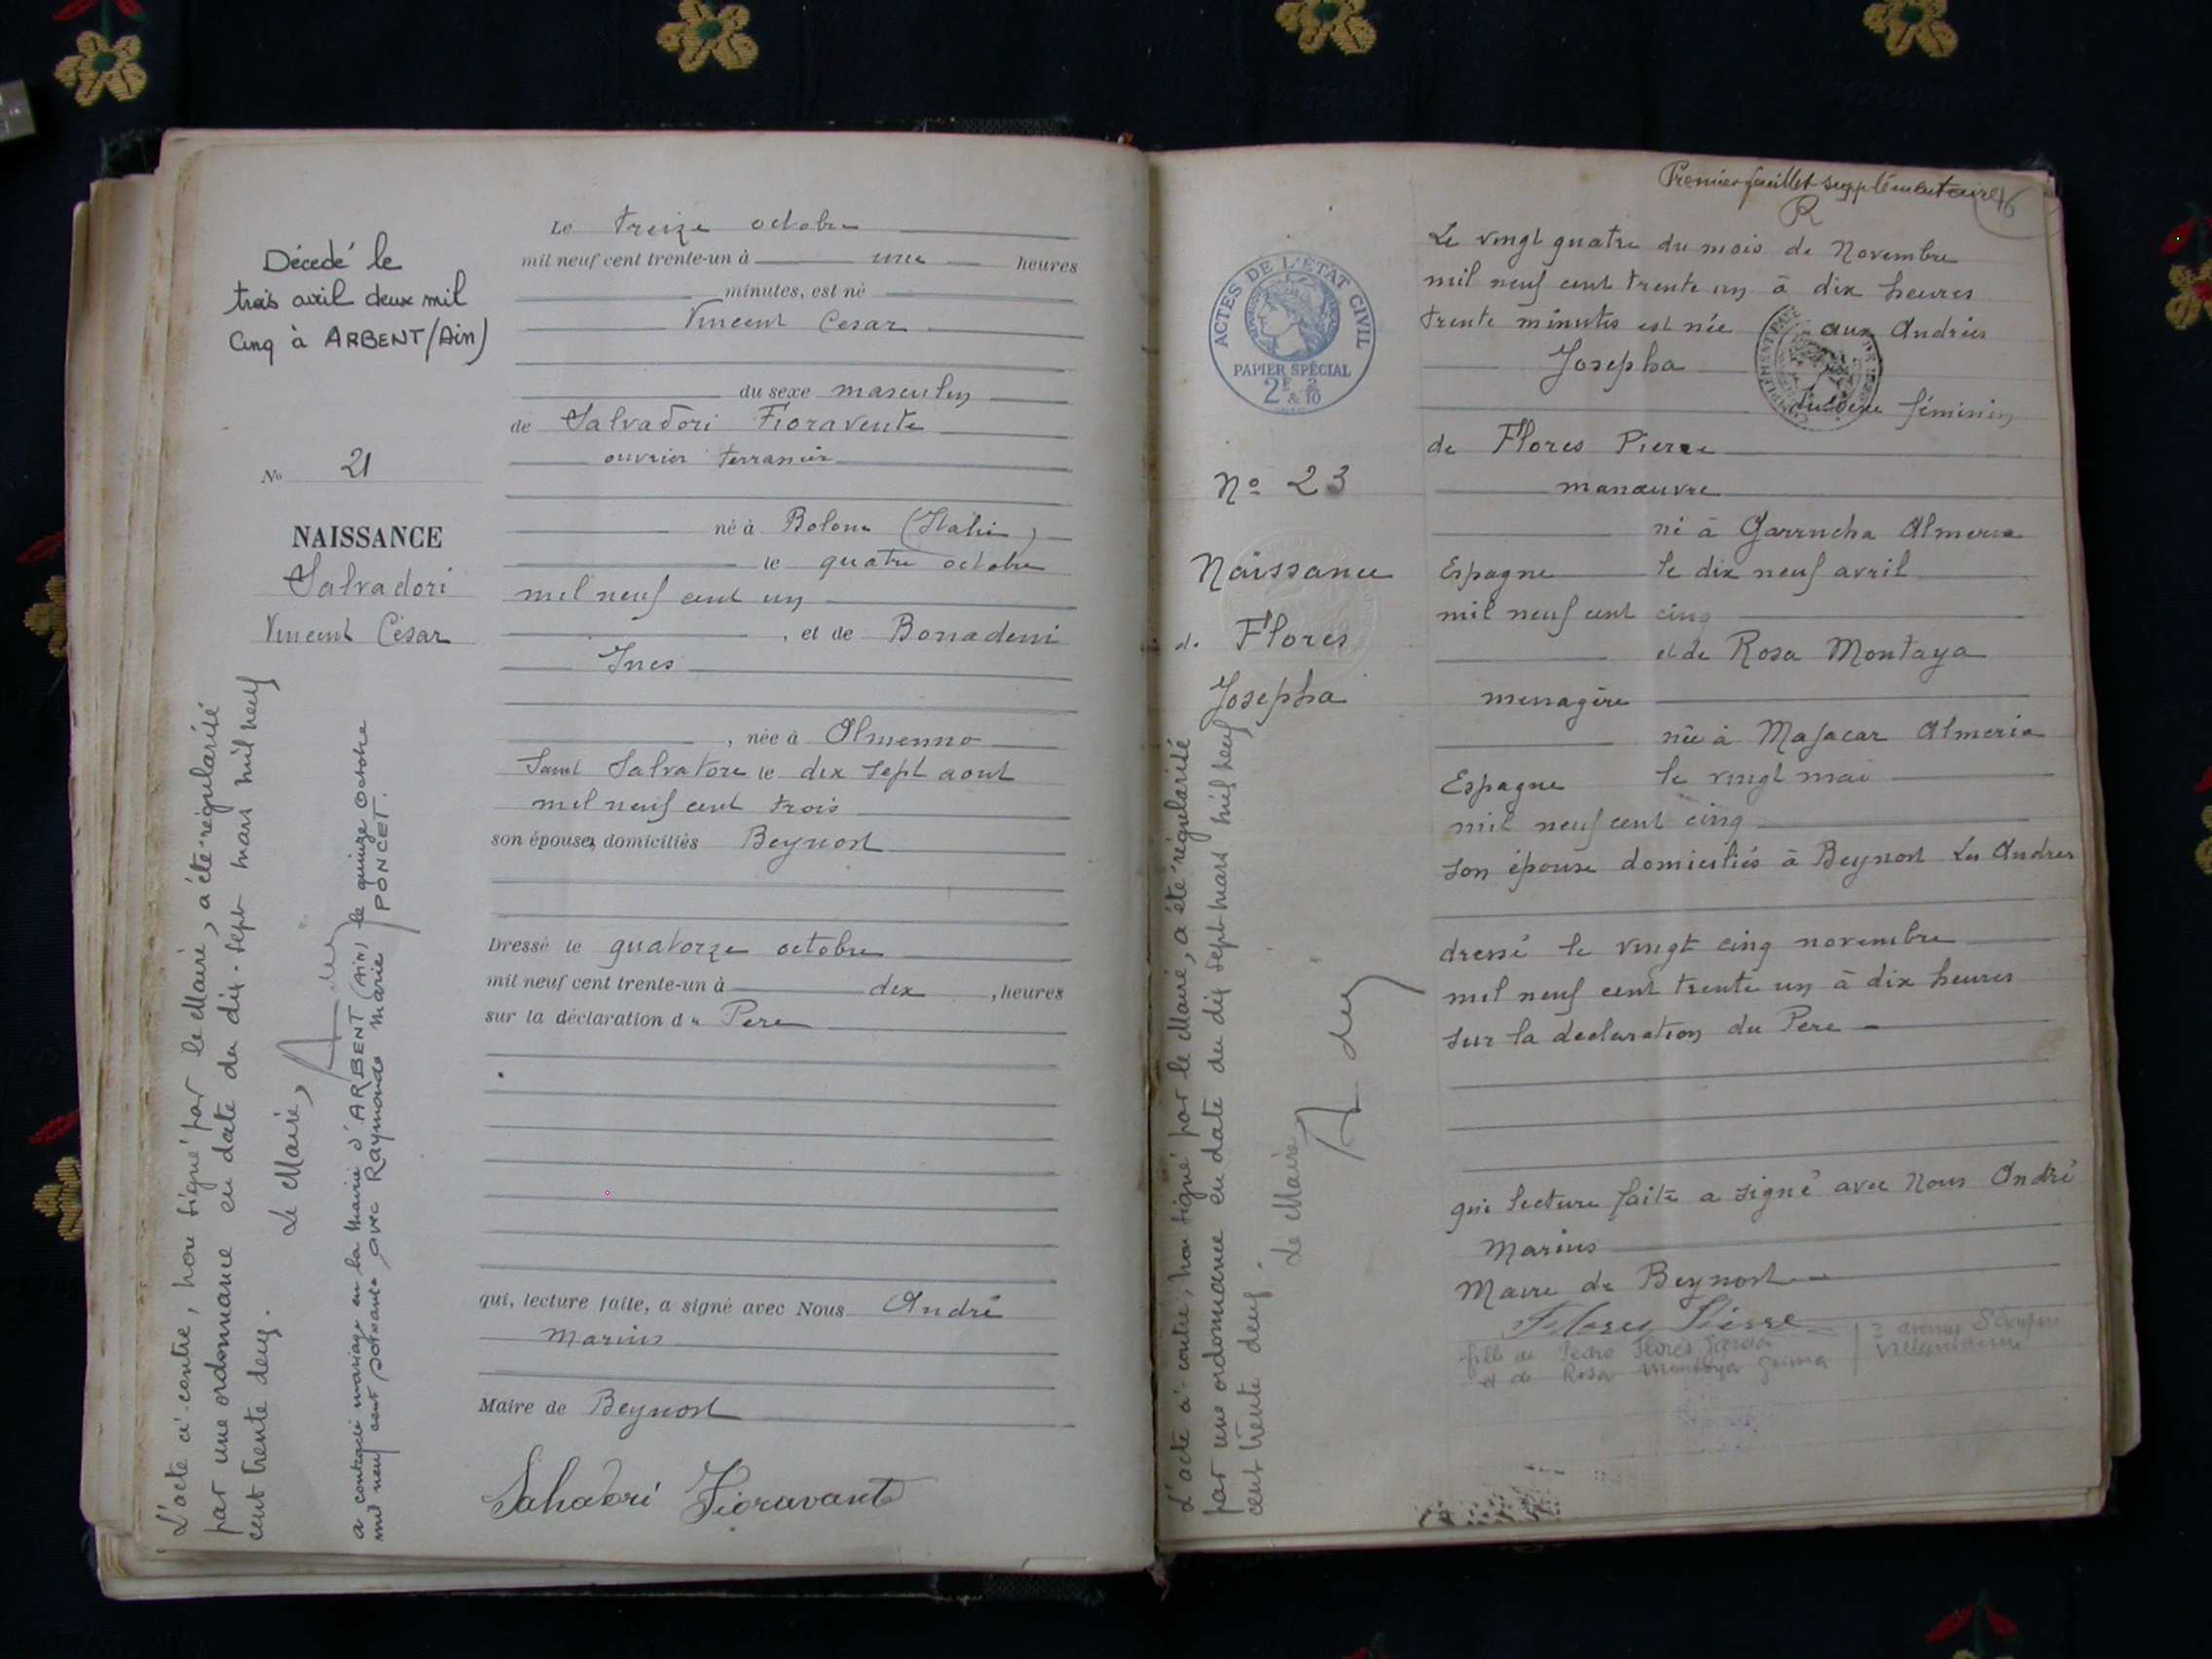 Décedé le
trois avril deux mil
cinq à ARBENT (Ain)
No 21
NAISSANCE
Salvadori
Vincent César
L'acte ci-contre, non signé par le Maire, a été régularisé
par une ordonnance en date du dix-sept mars mil neuf
cent trente deux.
Le Maire,
a contracté mariage en la mairie d'ARBENT (Ain) le quinze octobre
mil neuf cent soixante avec Raymonde Marie PONCET.
Le treize octobre
mil neuf cent trente-un à une heures
minutes, est né
Vincent Cesar
du sexe masculin
de Salvadori Fioravente
ouvrier terrassier
né à (Italie)
le quatre octobre
mil neuf cent un
, et de Bonadeni
Ines
, née à Almenno
Saint Salvatore le dix sept aout
mil neuf cent trois
son épouse, domiciliés Beynost
Dressé le quatorze octobre
mil neuf cent trente-un à dix , heures
sur la déclaration du Pere
qui, lecture faite, a signé avec Nous André
Marius
Maire de Beynost
Salvadori Fioravante
Premier feuillet supplémentaire
R
ACTES DE L'ÉTAT CIVIL
PAPIER SPÉCIAL
2F & 2/10
No 23
Naissance
de Flores
Josepha
L'acte ci-contre, non signé par le Maire, a été régularisé
par une ordonnance en date du dix sept mars mil neuf
cent trente deux.
Le Maire
Le vingt quatre du mois de Novembre
mil neuf cent trente un à dix heures
trente minutes est née aux Andrées
Josepha
du sexe féminin
de Flores Pierre
manœuvre
né à Garrucha Almeria
Espagne le dix neuf avril
mil neuf cent cinq
et de Rosa Montaya
menagère
née à Majacar Almeria
Espagne le vingt mai
mil neuf cent cinq
son épouse domiciliés à Beynost Les Andres
dressé le vingt cinq novembre
mil neuf cent trente un à dix heures
sur la declaration du Pere
qui lecture faite a signé avec Nous André
Marius
Maire de Beynost
Flores Pierre
fille de Pedro Flores Garcia
et de Rosa Montoya Grima
3 avenue
Villeurbanne